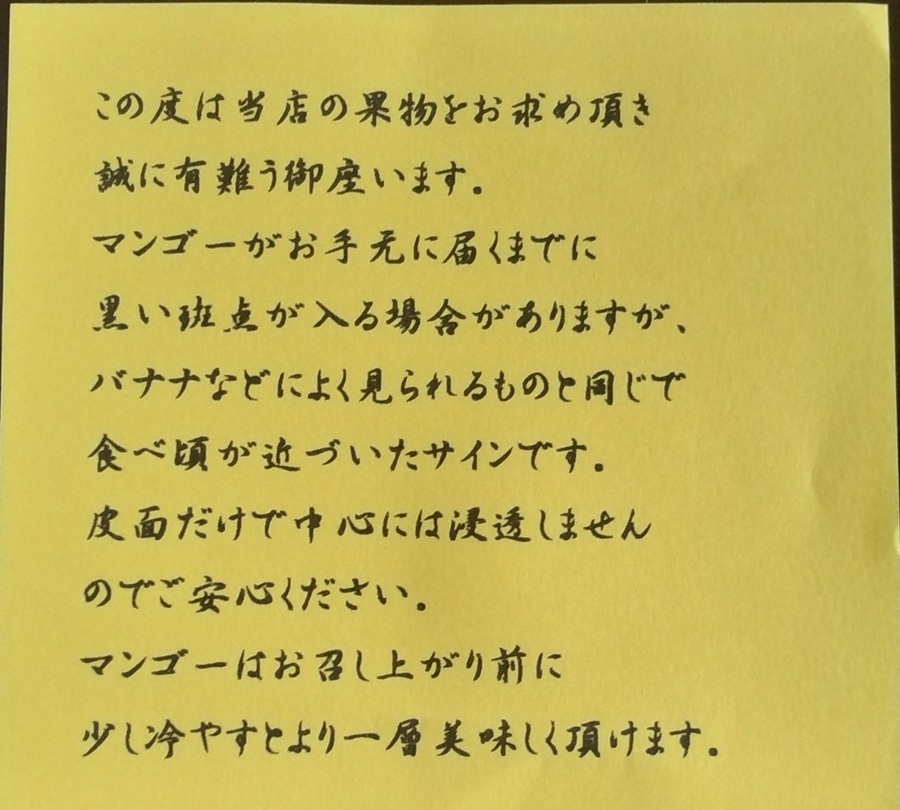 この度は当店の果物をお求め頂き
誠に有難う御座います。
マンゴーがお手元に届くまでに
黒い斑点が入る場合がありますが、
バナナなどによく見られるものと同じで
食べ頃が近づいたサインです。
皮面だけで中心には浸透しません
のでご安心ください。
マンゴーはお召し上がり前に
少し冷やすとより一層美味しく頂けます。